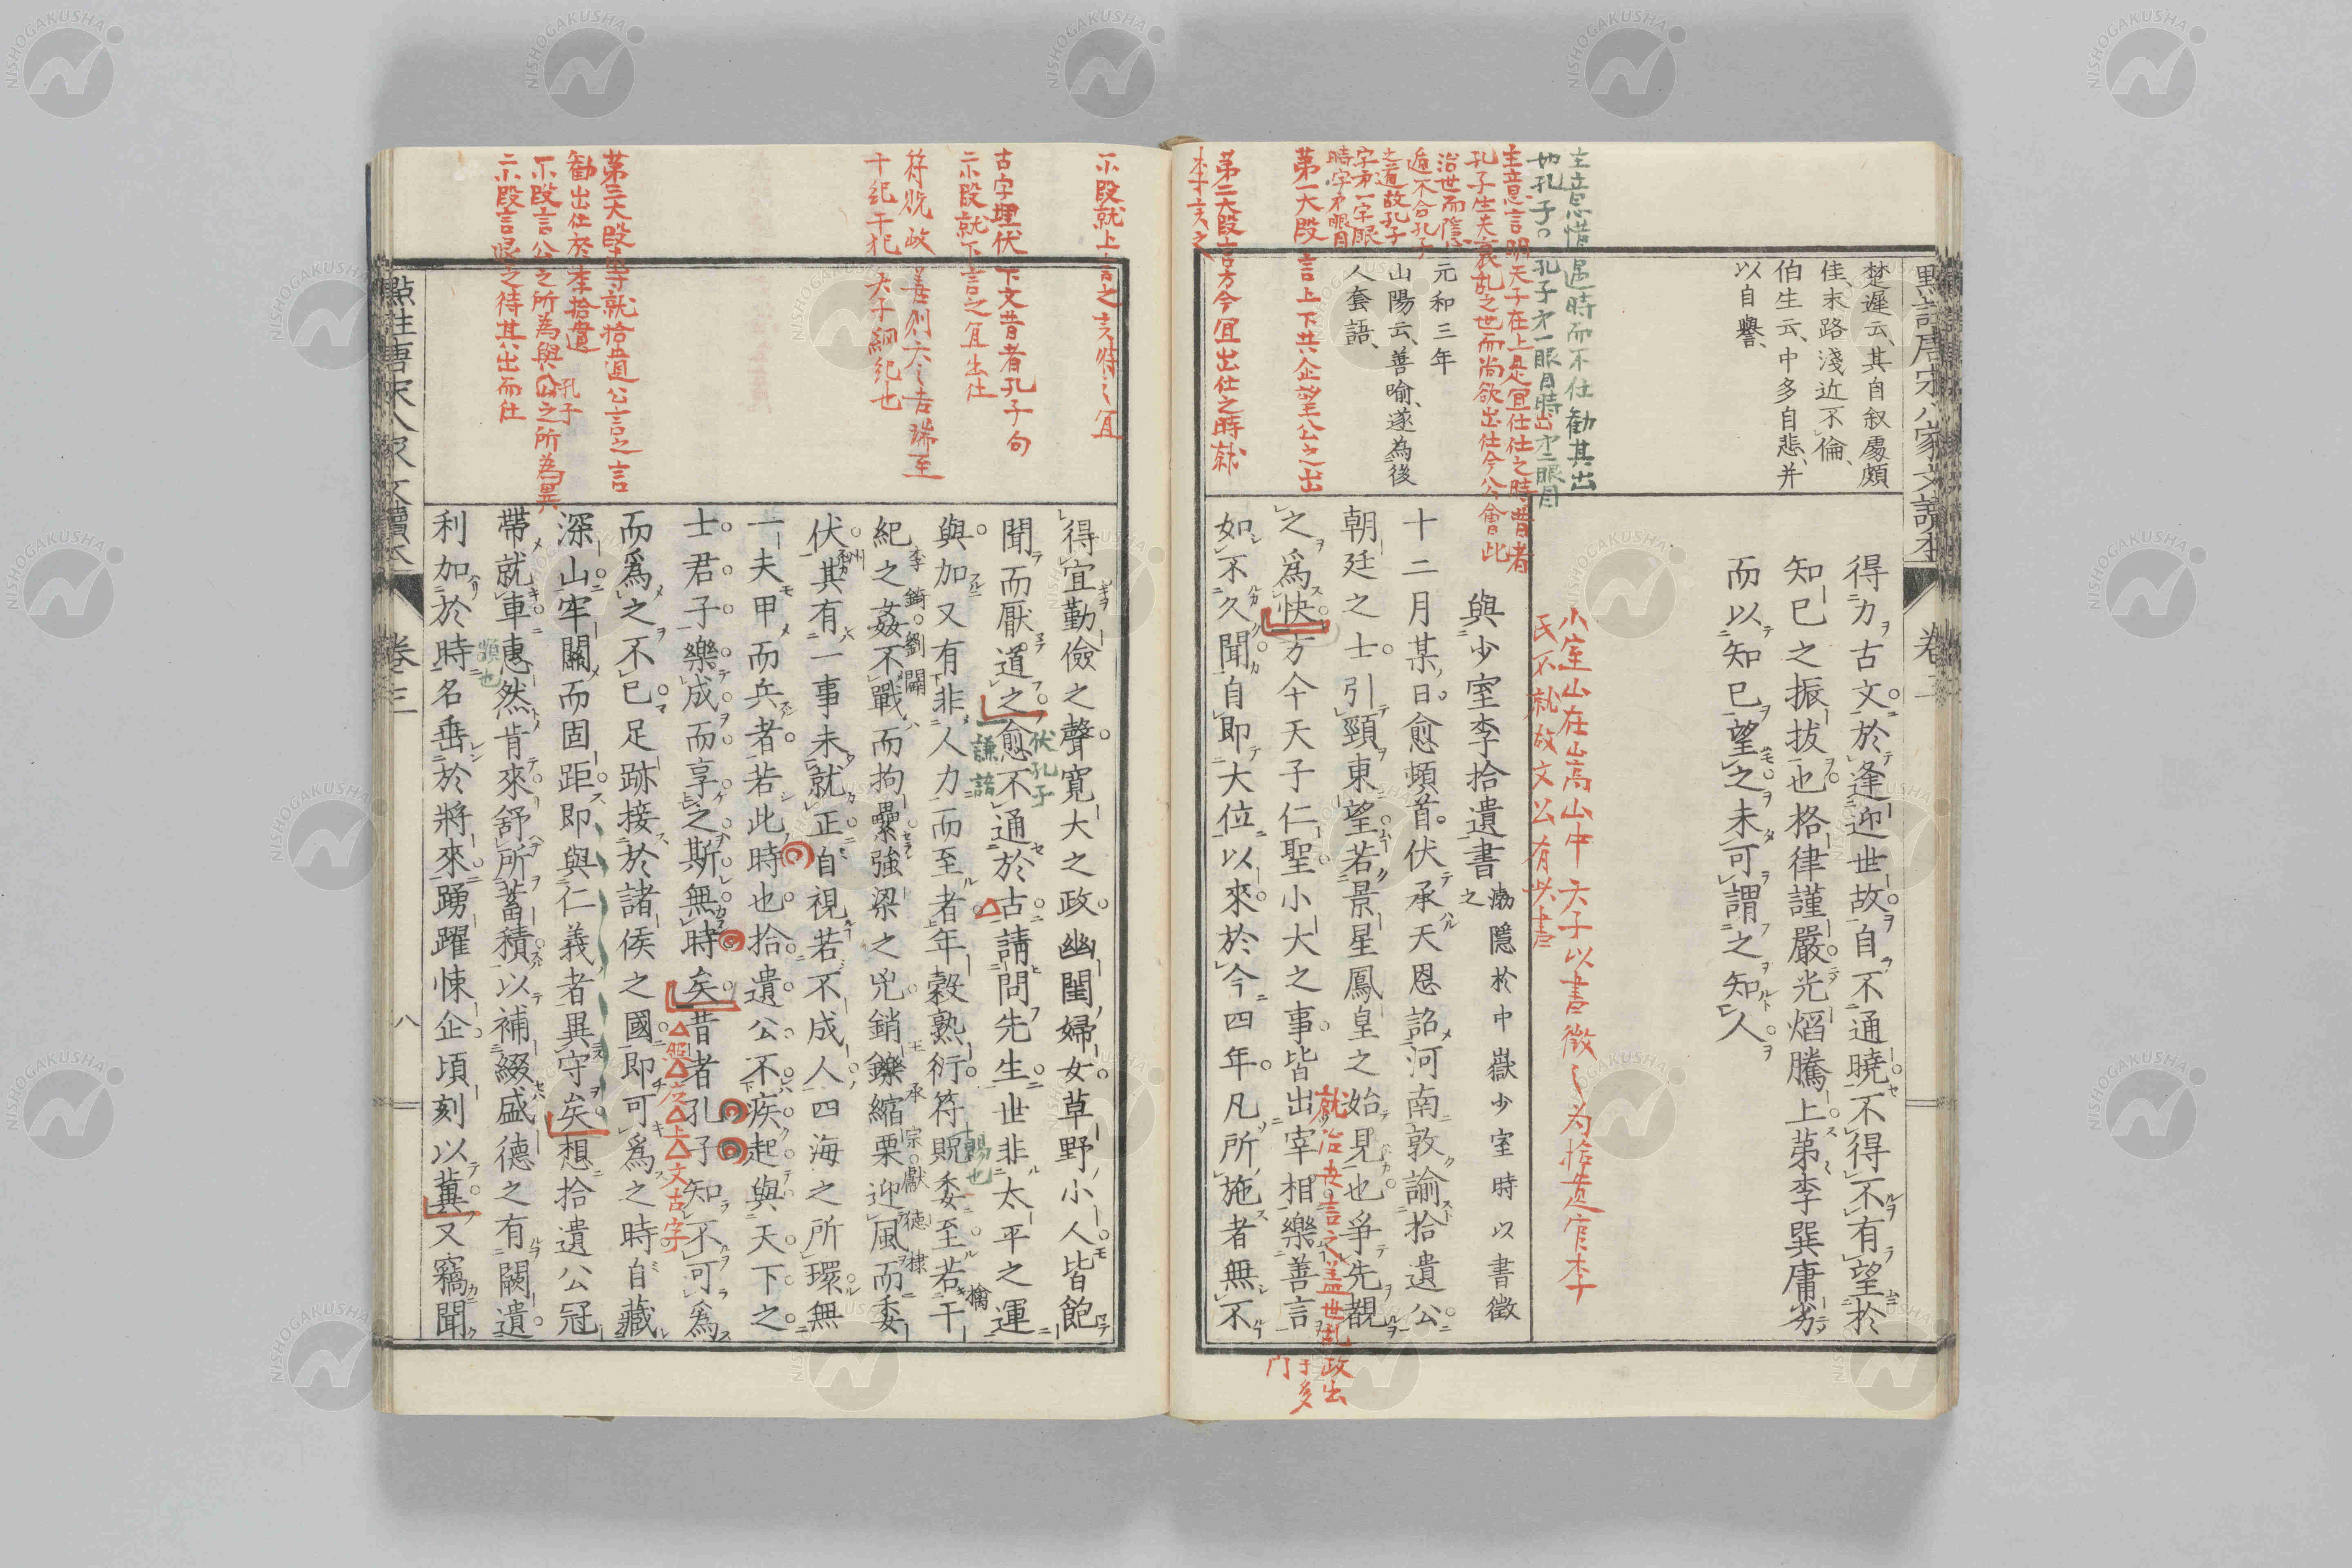 點註唐宋八家文讀本
卷三
楚遲云、其自叙處頗
佳、末路淺近不倫、
伯生云、中多自悲、并
以自譽、
得力古文於逢迎世故自不通曉不得不有望於
知已之振拔也格律謹嚴光熖騰上第李巽庸劣
而以知已望之未可謂之知人
主意惜遇時而不仕勸其出
小室山在嵩山中天子以書徵之為拾遺官李
氏不就故文公有此書
主意言明天子在上是宜仕仕之時昔者
孔子生夫衰乱之世而尚欲出仕今公會此
元和三年
山陽云、善喻、遂為後
人套語、
第一大段言上下共企望公之出
第二大段言方今宜出仕之時就
李言之
與少室李拾遺書渤隱於中嶽少室時以書徵之
十二月某日愈頓首伏承天恩詔河南敦諭拾遺公
朝廷之士引頸東望若景星鳳皇之始見也爭先覩
之爲快方今天子仁聖小大之事皆出宰相樂善言
如不久聞自即大位以來於今四年凡所施者無不
就治世言之蓋世乱政出
于多
门
示段就上言之
得宜勤儉之聲寛大之政幽閨婦女草野小人皆飽
聞而厭道之愈不通於古請問先生世非太平之運
與加又有非人力而至者年穀熟衍符貺委至若干
紀之姦不戰而拘纍強梁之兇銷鑠縮栗迎風而委
伏其有一事未就正自視若不成人四海之所環無
一夫甲而兵者若此時也拾遺公不疾起與天下之
士君子樂成而享之斯無時矣昔者孔子知不可爲
而爲之不已足跡接於諸侯之國即可爲之時自藏
深山牢關而固距即與仁義者異守矣想拾遺公冠
帶就車惠然肯來舒所蓄積以補綴盛德之有闕遺
利加於時名垂於將來踴躍悚企頃刻以冀又竊聞
伏孔子
謙語
李錡劉闢
王承宗獻德棣
賜也
古字埋伏下文昔者孔子句
示段就下言之宜出仕
干紀干犯天子綱紀也
第三大段專就拾遺公言之言
勸出仕於李拾遺
示段言公之所為與孔子之所為異
示段言民之待其出而仕
點註唐宋八家文讀本
卷三
八